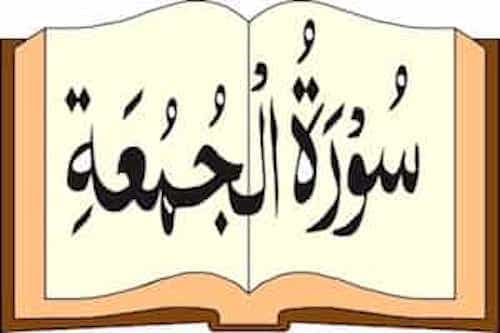 سُوْرَةُ الْجُمُعَةِ